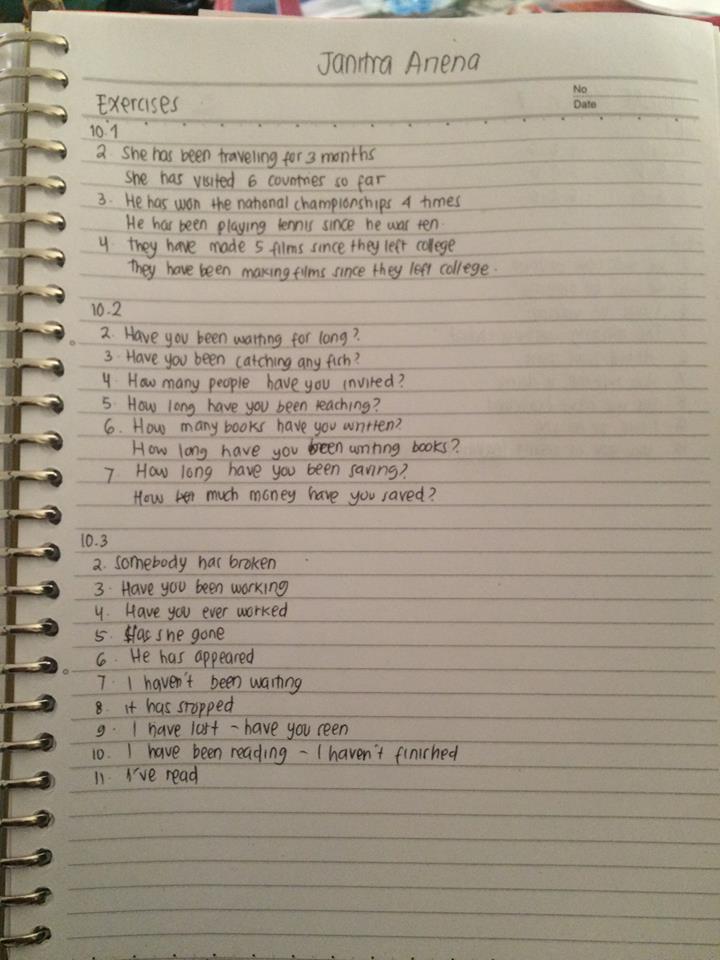 Janitra Ariena
No
Date
Exercises
10.1
2. She has been traveling for 3 months
She has visited 6 countries so far
3. He has won the national championships 4 times
He has been playing tennis since he was ten.
4 they have made 5 films since they left college
They have been making films since they left college.
10.2
2. Have you been waiting for long?
3. Have you been catching any fish?
4. How many people have you invited?
5. How long have you been teaching?
6. How many books have you written?
How long have you been writing books?
7 How long have you been saving?
How much money have you saved?
10.3
2. somebody has broken
3. Have you been working
4. Have you ever worked
5. Has she gone
6. He has appeared
7. I haven't been waiting
8. it has stopped
9. I have lost - have you seen
10. I have been reading - I haven't finished
11. I've read